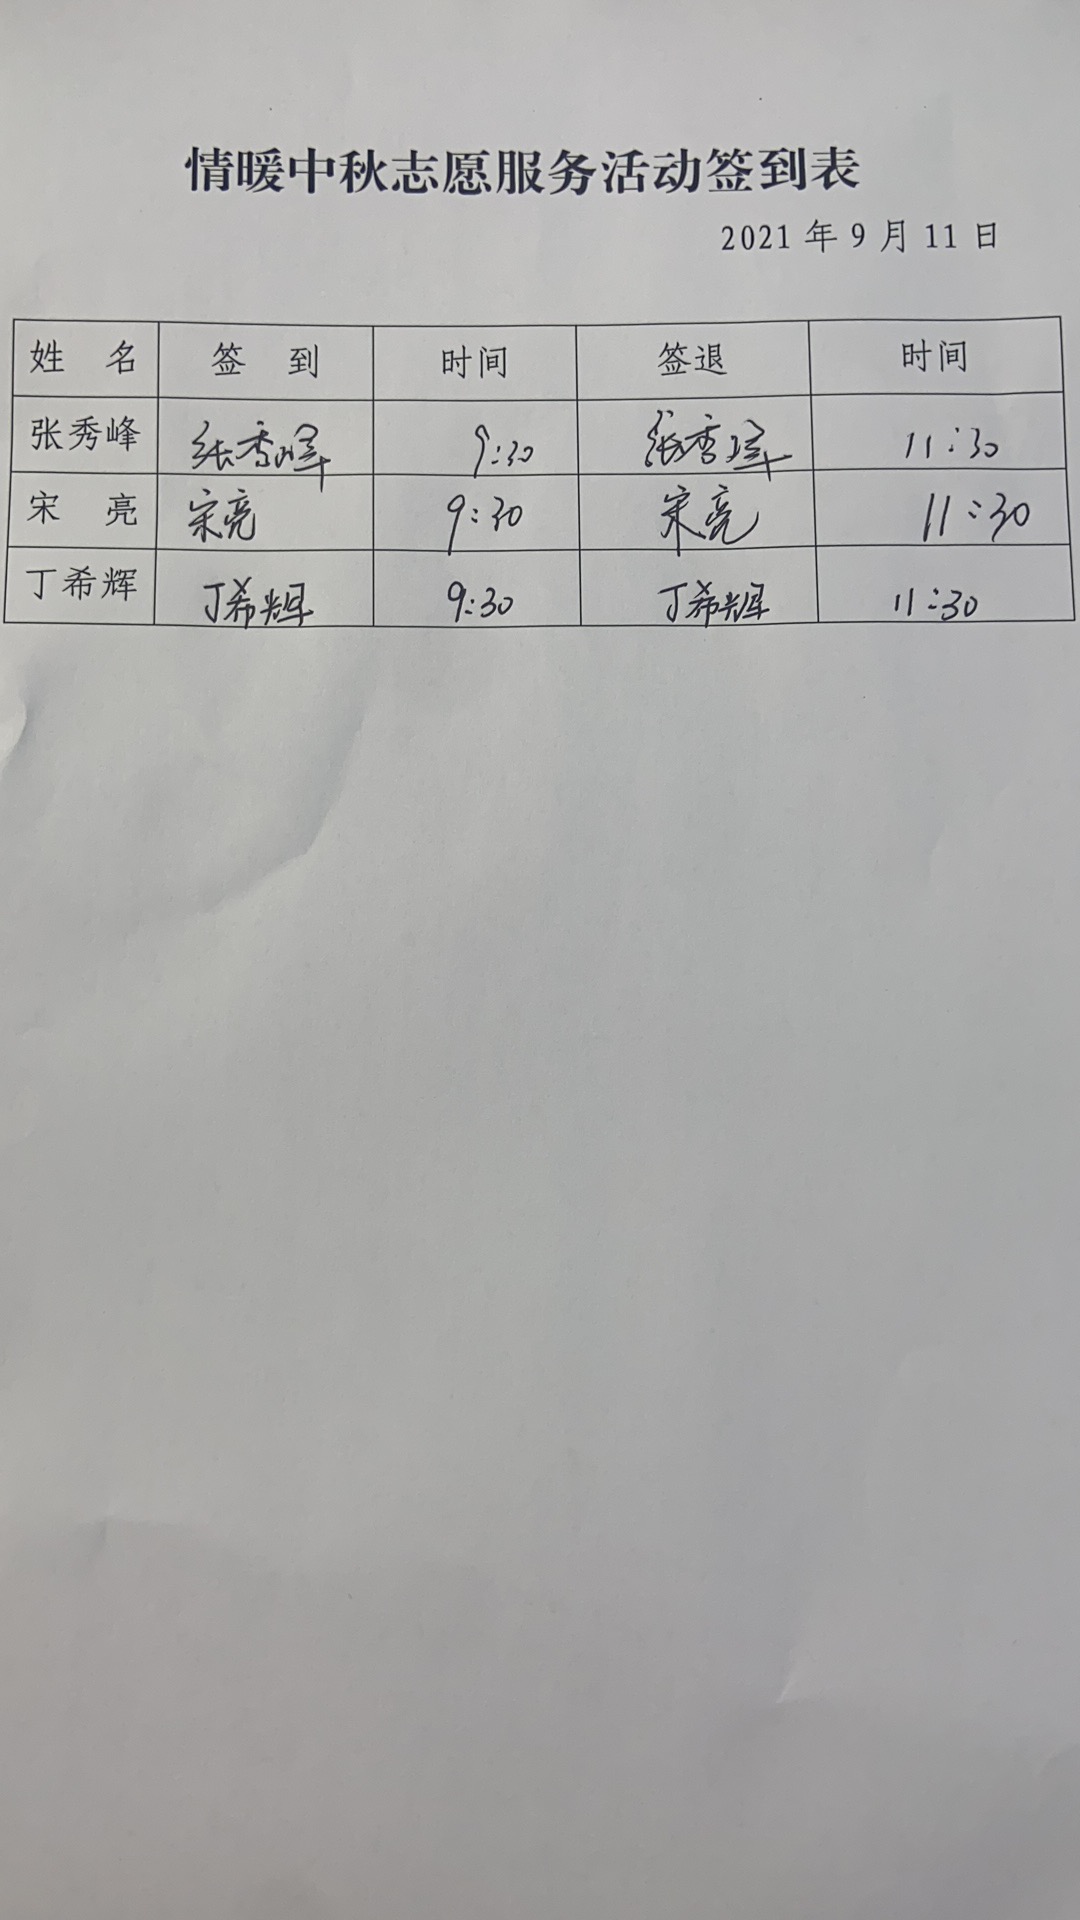 情暖中秋志愿服务活动签到表
2021年9月11日
姓 名 签 到 时间 签退 时间
张秀峰 张秀峰 9:30 张秀峰 11:30
宋 亮 宋亮 9:30 宋亮 11:30
丁希辉 丁希辉 9:30 丁希辉 11:30